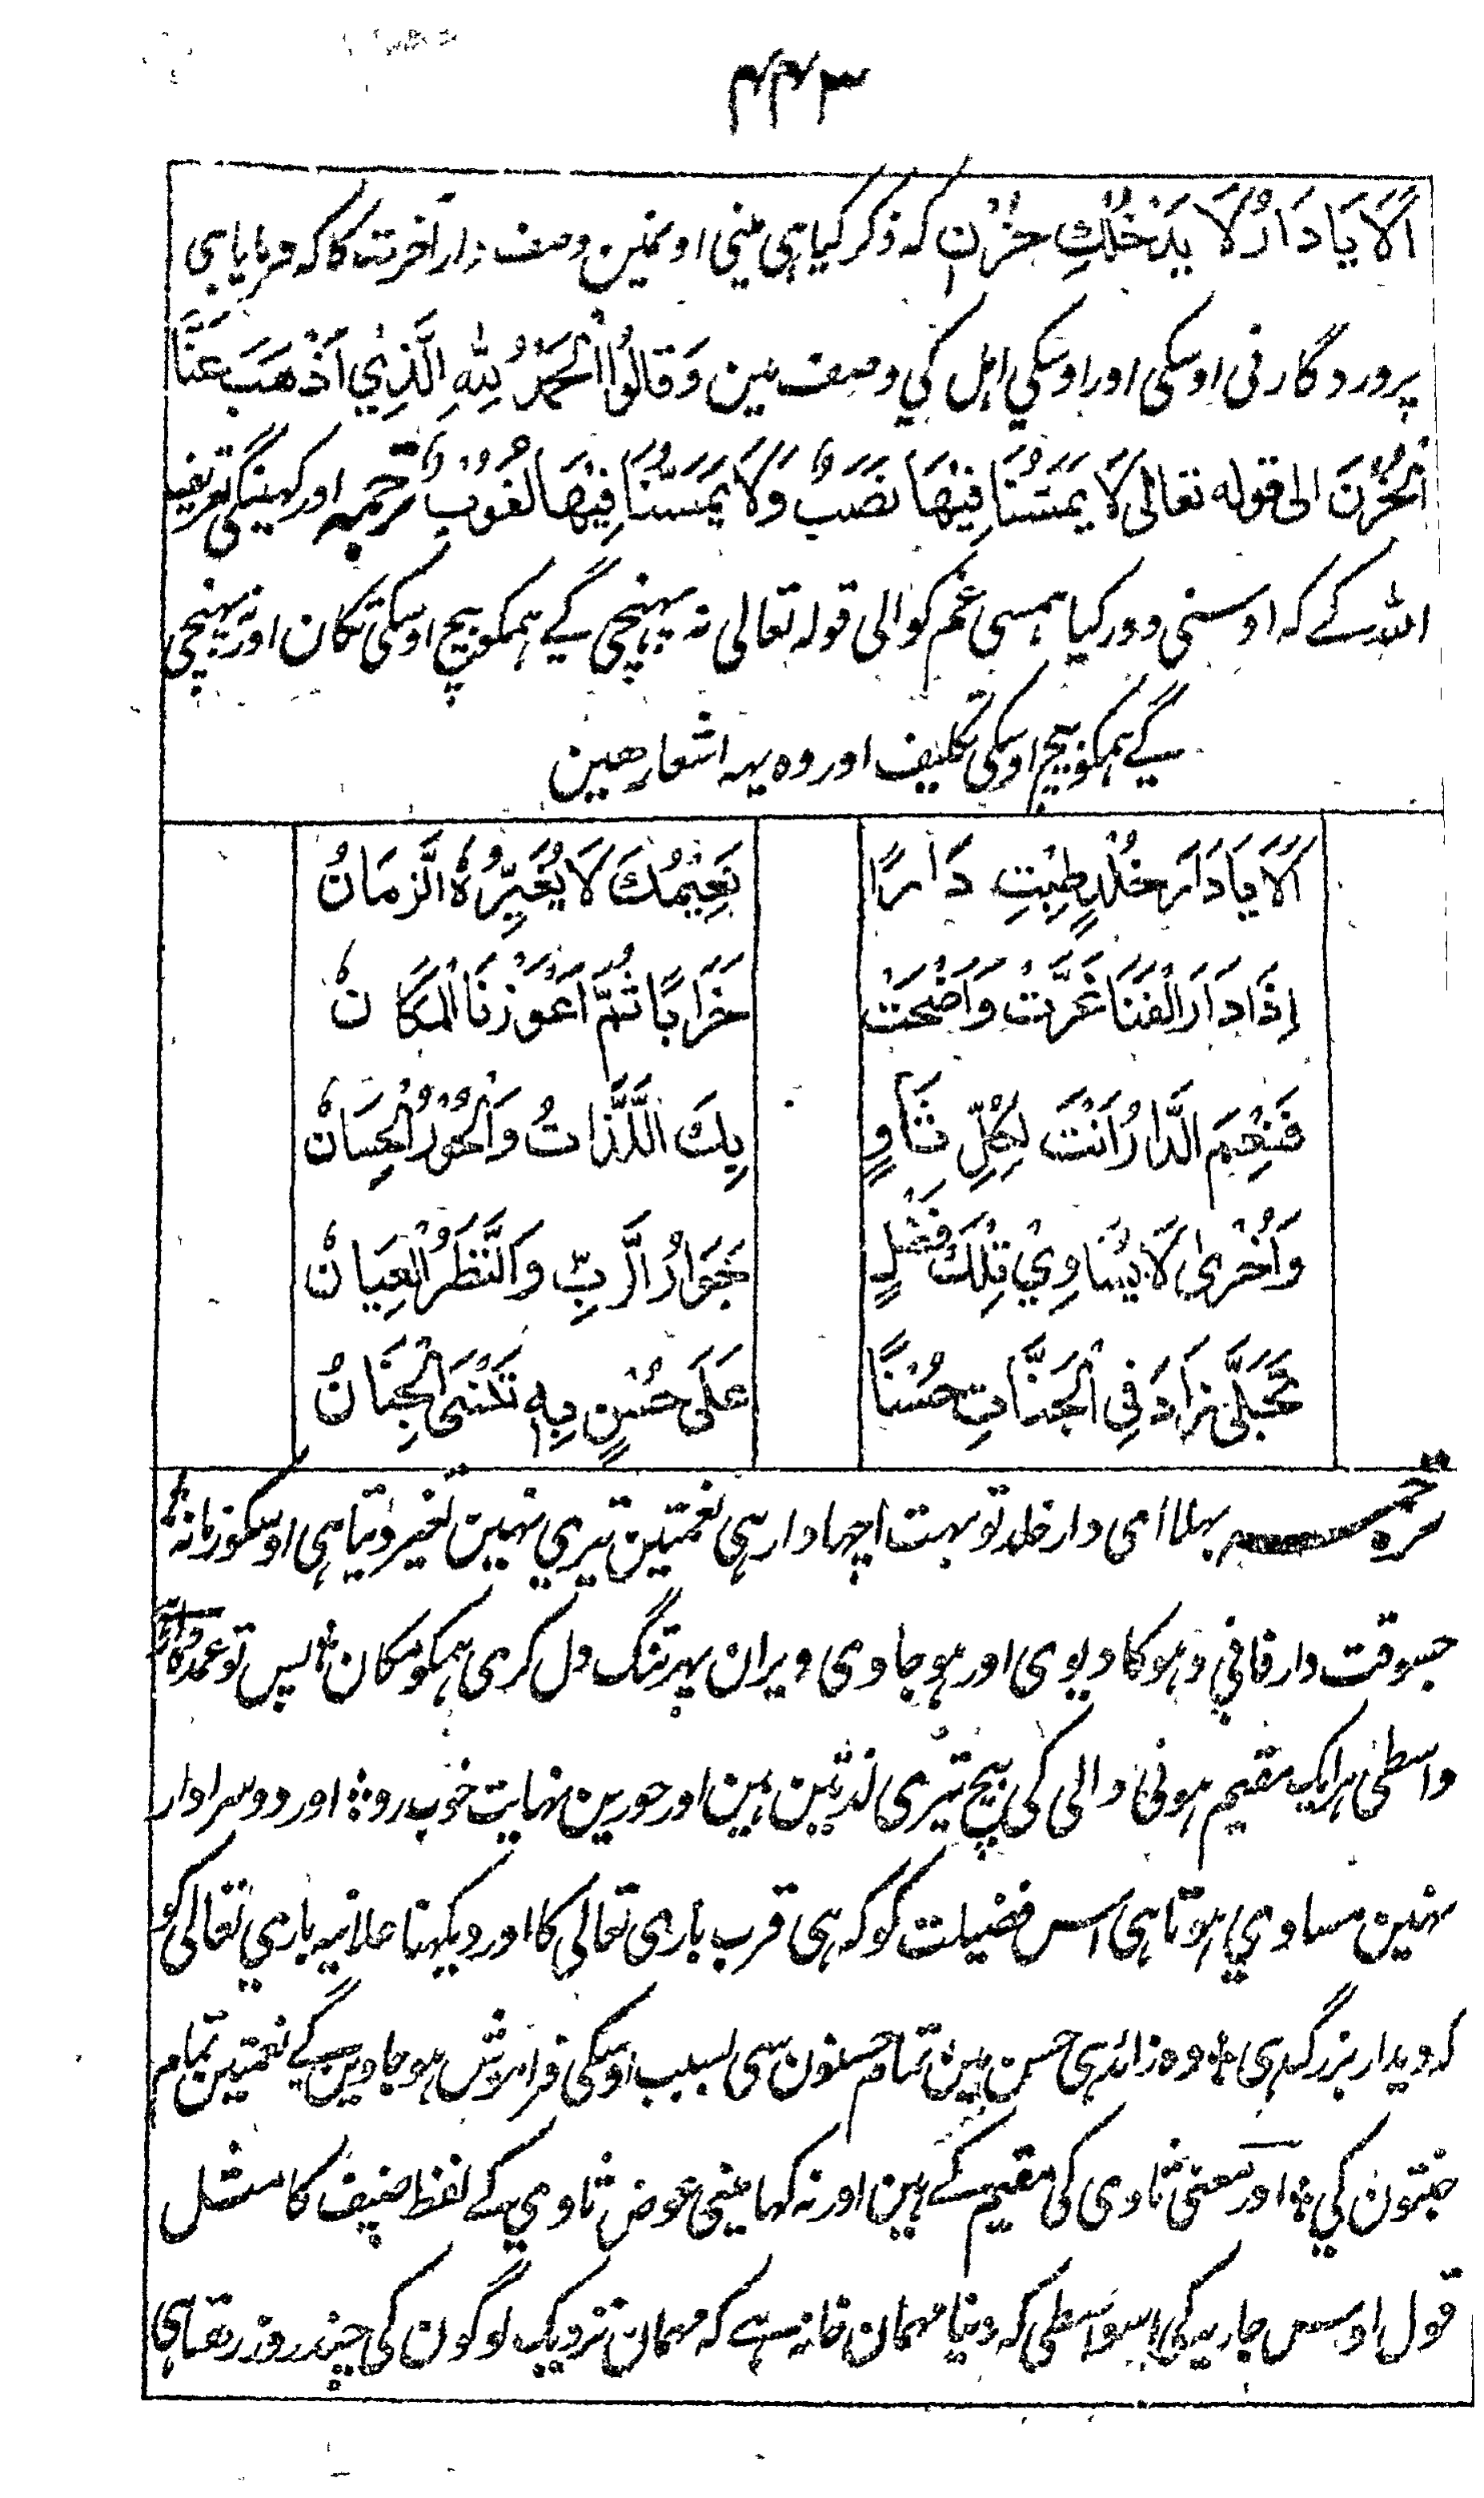 ۴۴۳
اَلَا يَا دَارُ لَا يَدْخُلْكِ حُزْن کہ ذکر کیا ہی مینی اونمین وصف دار آخرت کا کہ فرمایا ہی
پروردگار نی اوسکی اور اوسکي اہل کي وصف مین وَقَالُوا الْحَمْدُ لِلّٰهِ الَّذِيْ اَذْهَبَ عَنَّا
الْحُزْنَ الی قولہ تعالی لَا يَمَسُّنَا فِيْهَا نَصَبٌ وَّلَا يَمَسُّنَا فِيْهَا لُغُوْبٌ ترجمہ اور کہینگی تعریف
اللہ کے کہ اوسنی دور کیا ہمسی غم کو الی قولہ تعالی نہ پہنچی گے ہمکو بیچ اوسکی تکان اور نہ پہنچی
گے ہمکو بیچ اوسکی تکلیف اور وہ یہہ اشعار ھین
اَلَا يَا دَارَ خُلْدٍ طِبْتِ دَارًا نَعِيْمُكَ لَا يُغَيِّرُهُ الزَّمَانُ
اِذَا دَارُ الْفَنَا غَرَّتْ وَاَضْحَتْ خَرَابًا ثُمَّ اَعْوَزَنَا الْمَكَانُ
فَنِعْمَ الدَّارُ اَنْتَ لِكُلِّ ثَاوٍ بِكَ اللَّذَّاتُ وَالْحُوْرُ الْحِسَانُ
وَاُخْرٰى لَا يُسَاوِيْ تِلْكَ فَضْلٍ جَوَارُ الرَّبِّ وَالنَّظَرُ الْعِيَانُ
تَجَلّٰى زَادَ فِي الْجَنَّاتِ حُسْنًا عَلٰى حُسْنٍ بِهٖ تُنْسَى الْجِنَانُ
ترجمہ بہلا ای دار خلد تو بہت اچہا دار ہی نعمتین تیري نہین تغیر دیتا ہی اوسکو زمانہ
جسوقت دار فاني دہوکا دیوی اور ہو جاوی ویران پہر تنگ دل کری ہمکو مکان پس تو عمدہ دار
واسطی ہر ایک مقیم ہونی والی کی بیچ تیری لذتین ہین اور حورین نہایت خوب رو اور دوسرا دار
نہین مساوي ہوتا ہی اس فضیلت کو کہ ہی قرب باری تعالی کا اور دیکہنا علانیہ باري تعالی کو
کہ دیدار بزرگ ہی وہ زائد ہی حسن مین تمام حسنون سی بسبب اوسکی فراموش ہو جاوین گے نعمتین تمام
جنتون کي اور معنی ثاوی کی مقیم کے ہین اور نہ کہا مینی عوض ثاوي کے لفظ ضیف کا مثل
قول اوس جاریہ کی اسواسطی کہ دنیا مہمان خانہ ہے کہ مہمان نزدیک لوگون کی چند روز رہتا ہی